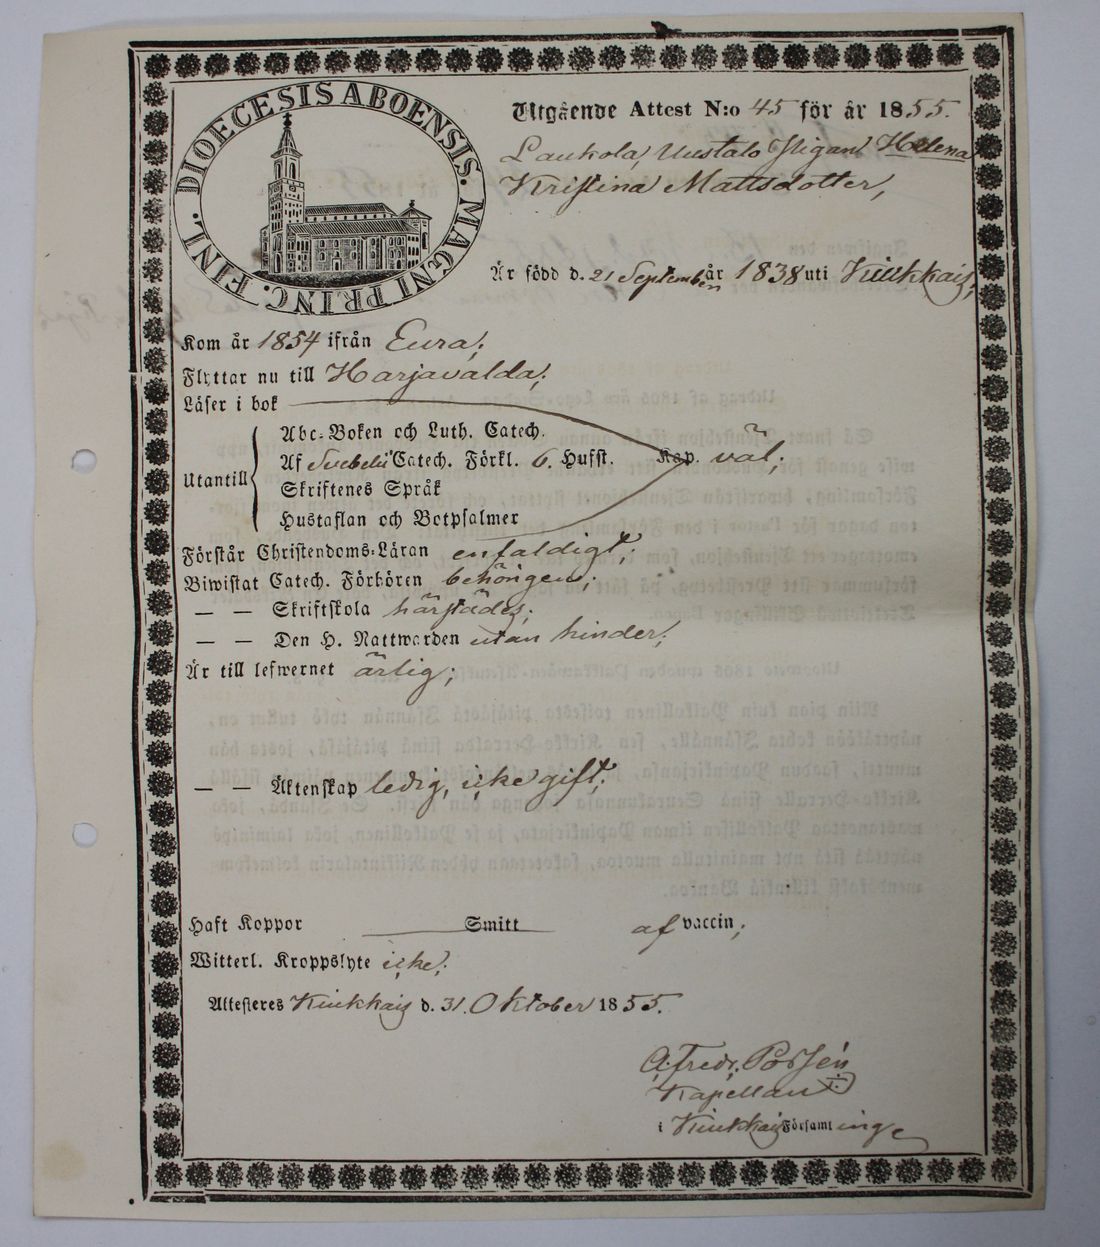 DIOECESIS ABOENSIS. MAGNI PRINC. FINL.
Utgående Attest N:o 45 för år 1855.
Laukola Uustalo Pigan Helena
Kristina Mattsdotter,
Är född d. 21 September år 1838 uti Kiukkais,
Kom år 1854 ifrån Eura;
Flyttar nu till Harjavalda;
Läser i bok
Utantill
Abc-Boken och Luth. Catech.
Af Svebelii Catech. Förkl. 6. Hufst. Kap. väl;
Skriftenes Språk
Hustaflan och Botpsalmer
Förstår Christendoms-Läran enfaldigt;
Biwistat Catech. Förhören behörigen;
— — Skriftskola härstädes;
— — Den H. Nattwarden utan hinder;
Är till lefwernet ärlig;
— — Äktenskap ledig, icke gift;
Haft Koppor Smitt af vaccin;
Witterl. Kroppslyte icke;
Attesteres Kiukkais d. 31. Oktober 1855.
Kapellan
i Kiukkais Församlinge